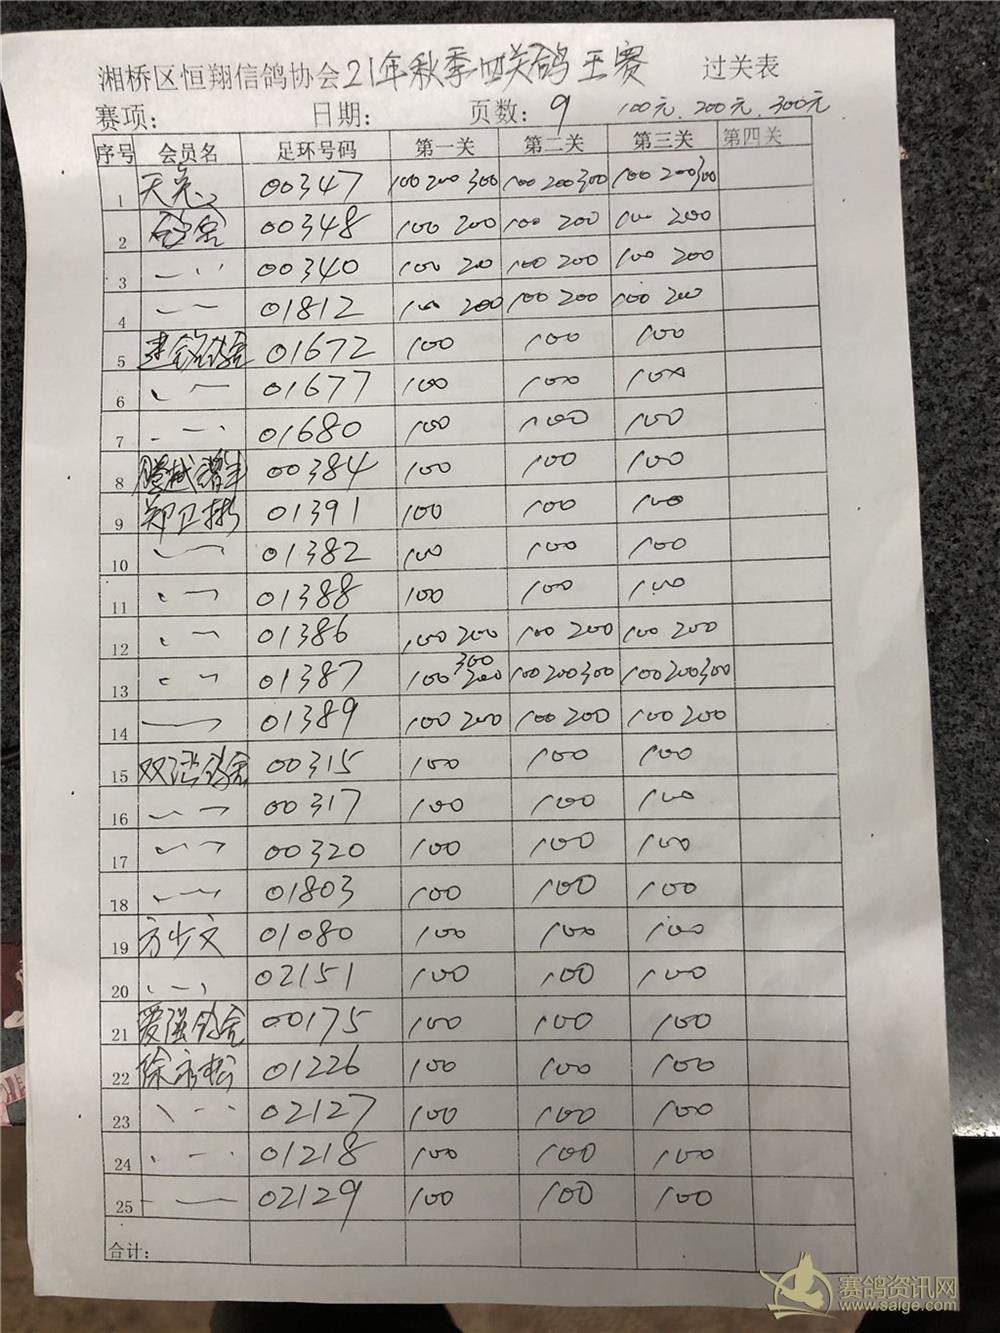 湘桥区恒翔信鸽协会21年秋季四关鸽王赛 过关表
赛项: 日期: 页数: 9 100元.200元.300元
序号 会员名 足环号码 第一关 第二关 第三关 第四关
1 天 00347 100 200 300 100 200 300 100 200 300
2 鸽舍 00348 100 200 100 200 100 200
3 00340 100 200 100 200 100 200
4 01812 100 200 100 200 100 200
5 建 鸽舍 01672 100 100 100
6 01677 100 100 100
7 01680 100 100 100
8 00384 100 100 100
9 郑卫彬 01391 100 100 100
10 01382 100 100 100
11 01388 100 100 100
12 01386 100 200 100 200 100 200
13 01387 100 200 300 100 200 300 100 200 300
14 01389 100 200 100 200 100 200
15 双 鸽舍 00315 100 100 100
16 00317 100 100 100
17 00320 100 100 100
18 01803 100 100 100
19 方少文 01080 100 100 100
20 02151 100 100 100
21 爱强鸽舍 00175 100 100 100
22 徐永松 01226 100 100 100
23 02127 100 100 100
24 01218 100 100 100
25 02129 100 100 100
合计:
赛鸽资讯网
www.saige.com